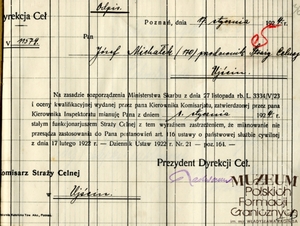 Odpis.
Dyrekcja Ceł
Poznań, dnia 17 stycznia 1924 r.
Pan
Józef Michałek (170) przodownik Straży Celnej
Ujście.
Na zasadzie rozporządzenia Ministerstwa Skarbu z dnia 27 listopada rb. L. 3334/V/23
i oceny kwalifikacyjnej wydanej przez pana Kierownika Komisarjatu, zatwierdzonej przez pana
Kierownika Inspektoratu mianuję Pana z dniem 1. stycznia 1924 r.
stałym funkcjonarjuszem Straży Celnej z tem wyraźnem zastrzeżeniem, że mianowanie nie
przesądza zastosowania do Pana postanowień art. 116 ustawy o państwowej służbie cywilnej
z dnia 17 lutego 1922 r. — Dziennik Ustaw 1922 r. Nr. 21 — poz. 164.
Prezydent Dyrekcji Ceł.
Komisarz Straży Celnej
Ujście
MUZEUM
Polskich
Formacji
Granicznych